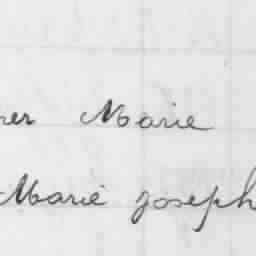 ner Marie
Marie joseph